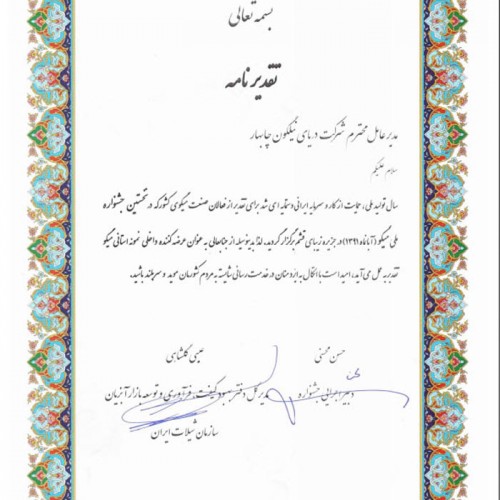 بسمه تعالی
تقدیر نامه
مدیر عامل محترم شرکت دریای نیلگون چابهار
سلام علیکم
سال تولید ملی، حمایت از کار و سرمایه ایرانی دستمایه ای شد برای تقدیر از فعالان صنعت میگوی کشور که در نخستین جشنواره
ملی میگو (آبانماه ۱۳۹۱) در جزیره زیبای قشم برگزار گردید. لذا بدینوسیله از جنابعالی به عنوان عرضه کننده داخلی نمونه استانی میگو
تقدیر به عمل می آید، امید است با اتکال به ایزد منان در خدمت رسانی شایسته به مردم کشورمان موید و سربلند باشید.
حسن محسنی عیسی گلشاهی
دبیر اجرایی جشنواره مدیر کل دفتر بهبود کیفیت، فرآوری و توسعه بازار آبزیان
سازمان شیلات ایران